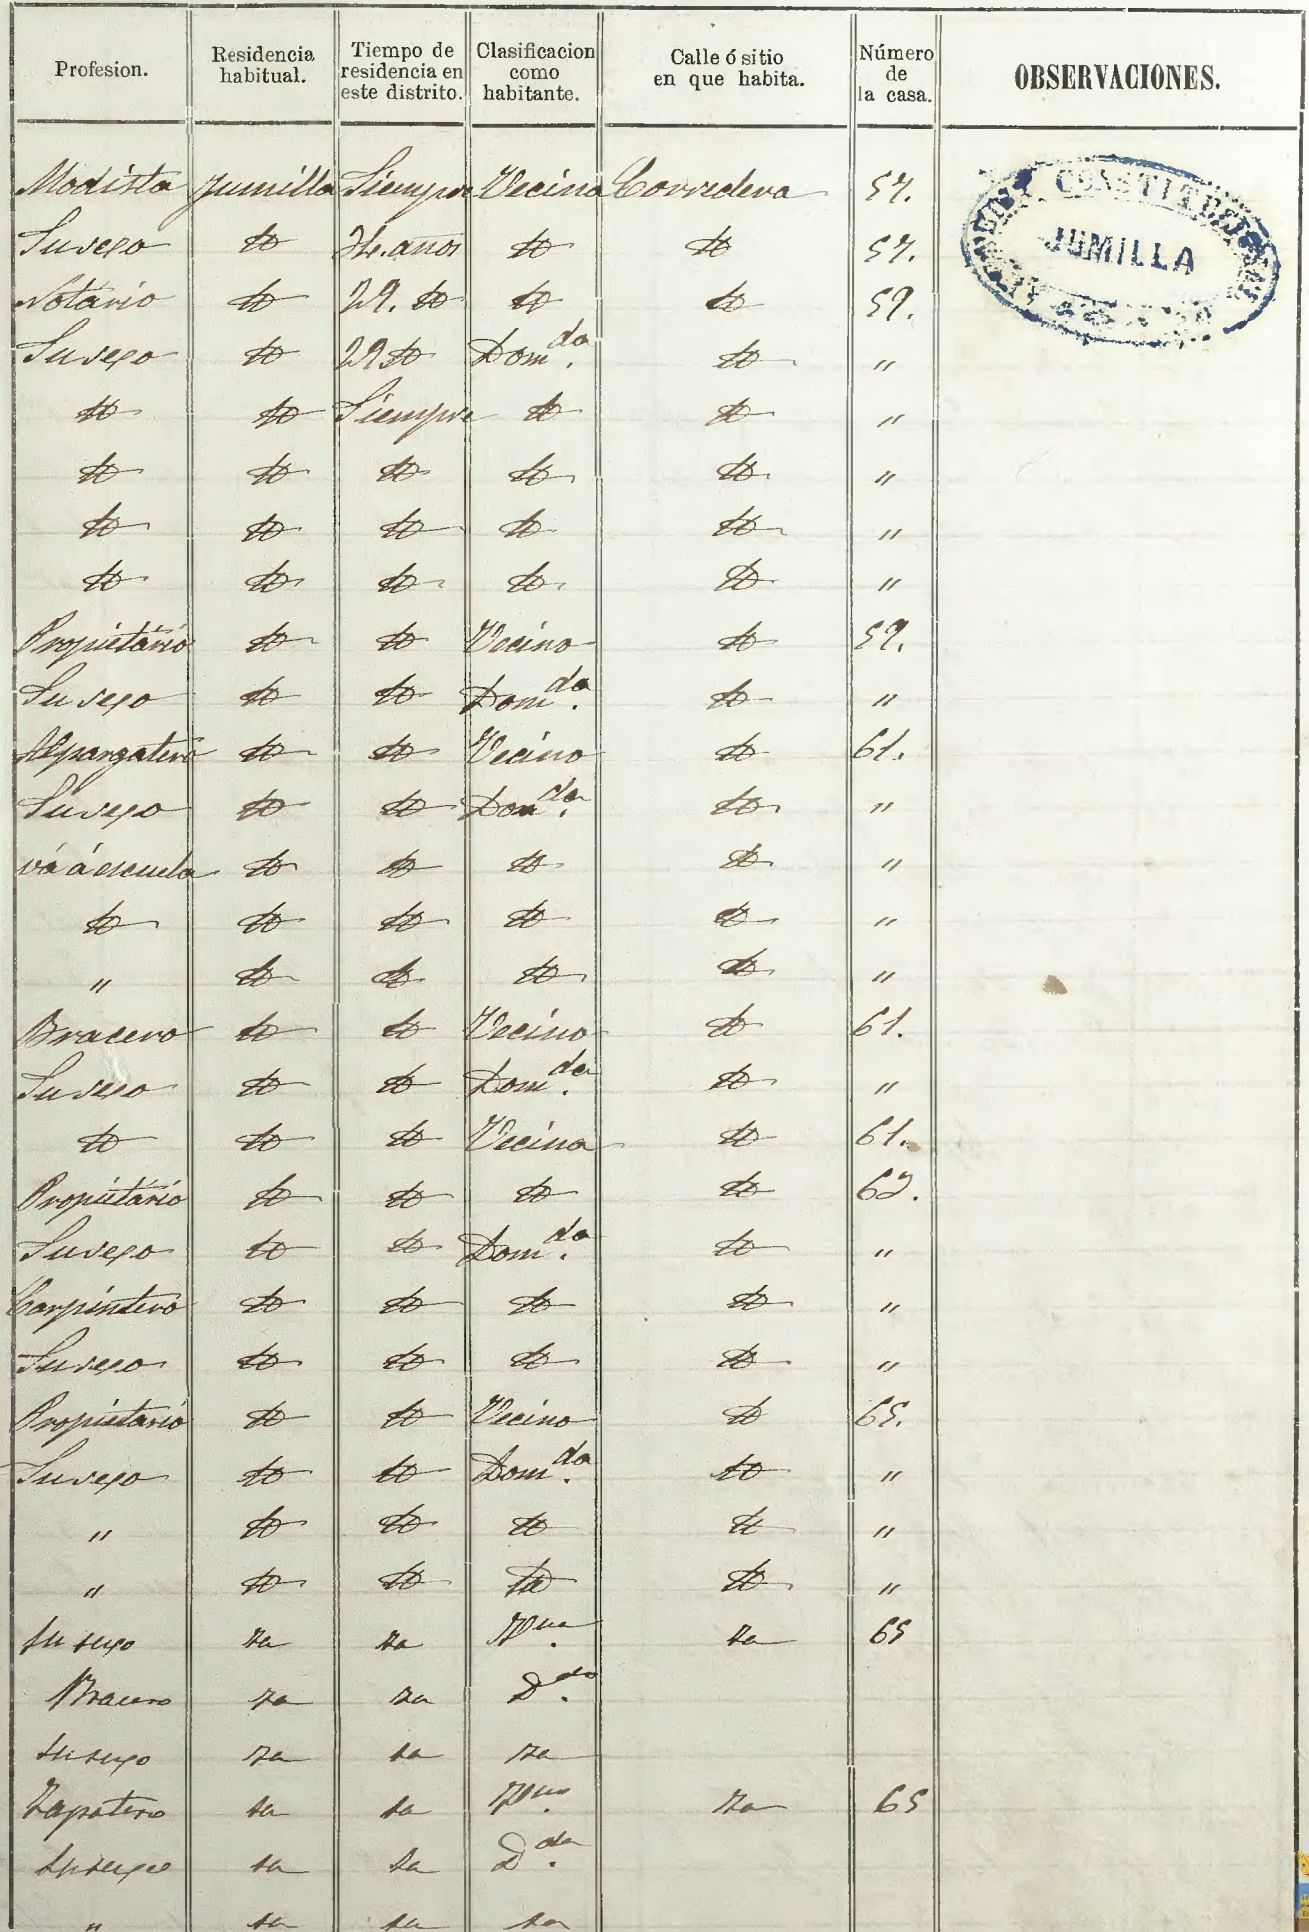 Profesion. Residencia habitual. Tiempo de residencia en este distrito. Clasificacion como habitante. Calle ó sitio en que habita. Número de la casa. OBSERVACIONES.
Modista Jumilla Siempre Vecina Corredera 57.
Su sexo id 34. años id id 57.
Notario id 29. id id id 59.
Su sexo id 29 id Domda. id "
id id Siempre id id "
id id id id id "
id id id id id "
id id id id id "
Propietario id id Vecino id 59.
Su sexo id id Domda. id "
Alpargatero id id Vecino id 61.
Su sexo id id Domda. id "
vá á escuela id id id id "
id id id id id "
" id id id id "
Bracero id id Vecino id 61.
Su sexo id id Domda. id "
id id id Vecina id 61.
Propietario id id id id 62.
Su sexo id id Domda. id "
Carpintero id id id id "
Su sexo id id id id "
Propietario id id Vecino id 65.
Su sexo id id Domda. id "
" id id id id "
" id id id id "
Su sexo id id Vna. id 65
Bracero id id Ddo.
Su sexo id id id
Zapatero id id Vno. id 65
Su sexo id id Dda.
" id id id
JUMILLA